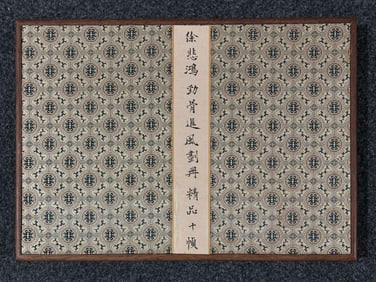 徐悲鴻 勁骨追風劃冊 精品十幀